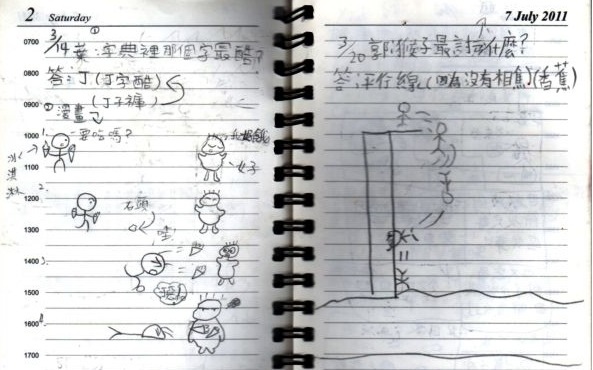 2 Saturday
3/14 葉:字典裡那個字最酷?
0700
答:丁(丁字酷)
0800
(丁子褲)
0900
漫畫
1000
要吃嗎?
冰淇淋
1100
女子
1200
石頭
1300
哇!
1400
1500
1600
1700
7 July 2011
3/20 郭:猴子最討厭什麼?
答:平行線,(因為沒有相焦)(香蕉)